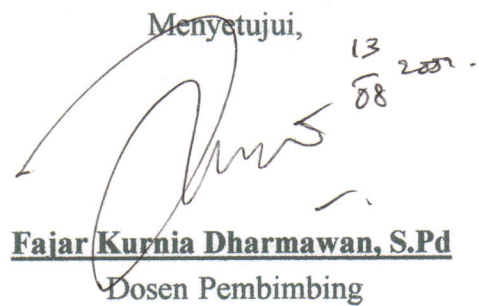 Menyetujui,
13
08
Fajar Kurnia Dharmawan, S.Pd
Dosen Pembimbing